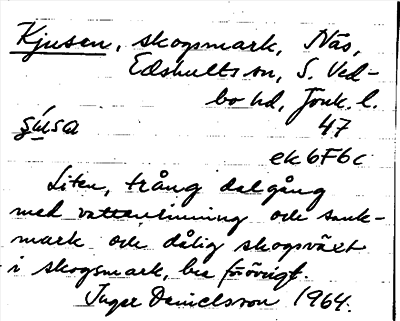 Kjusen, skogsmark, Näs,
Edshults sn, S. Ved-
bo hd, Jönk. l.
47
ek 6F6c
Liten, trång dalgång
med vattenrinning och sank-
mark och dålig skogsväxt
i skogsmark, bes förövrigt.
Inger Danielsson 1964.